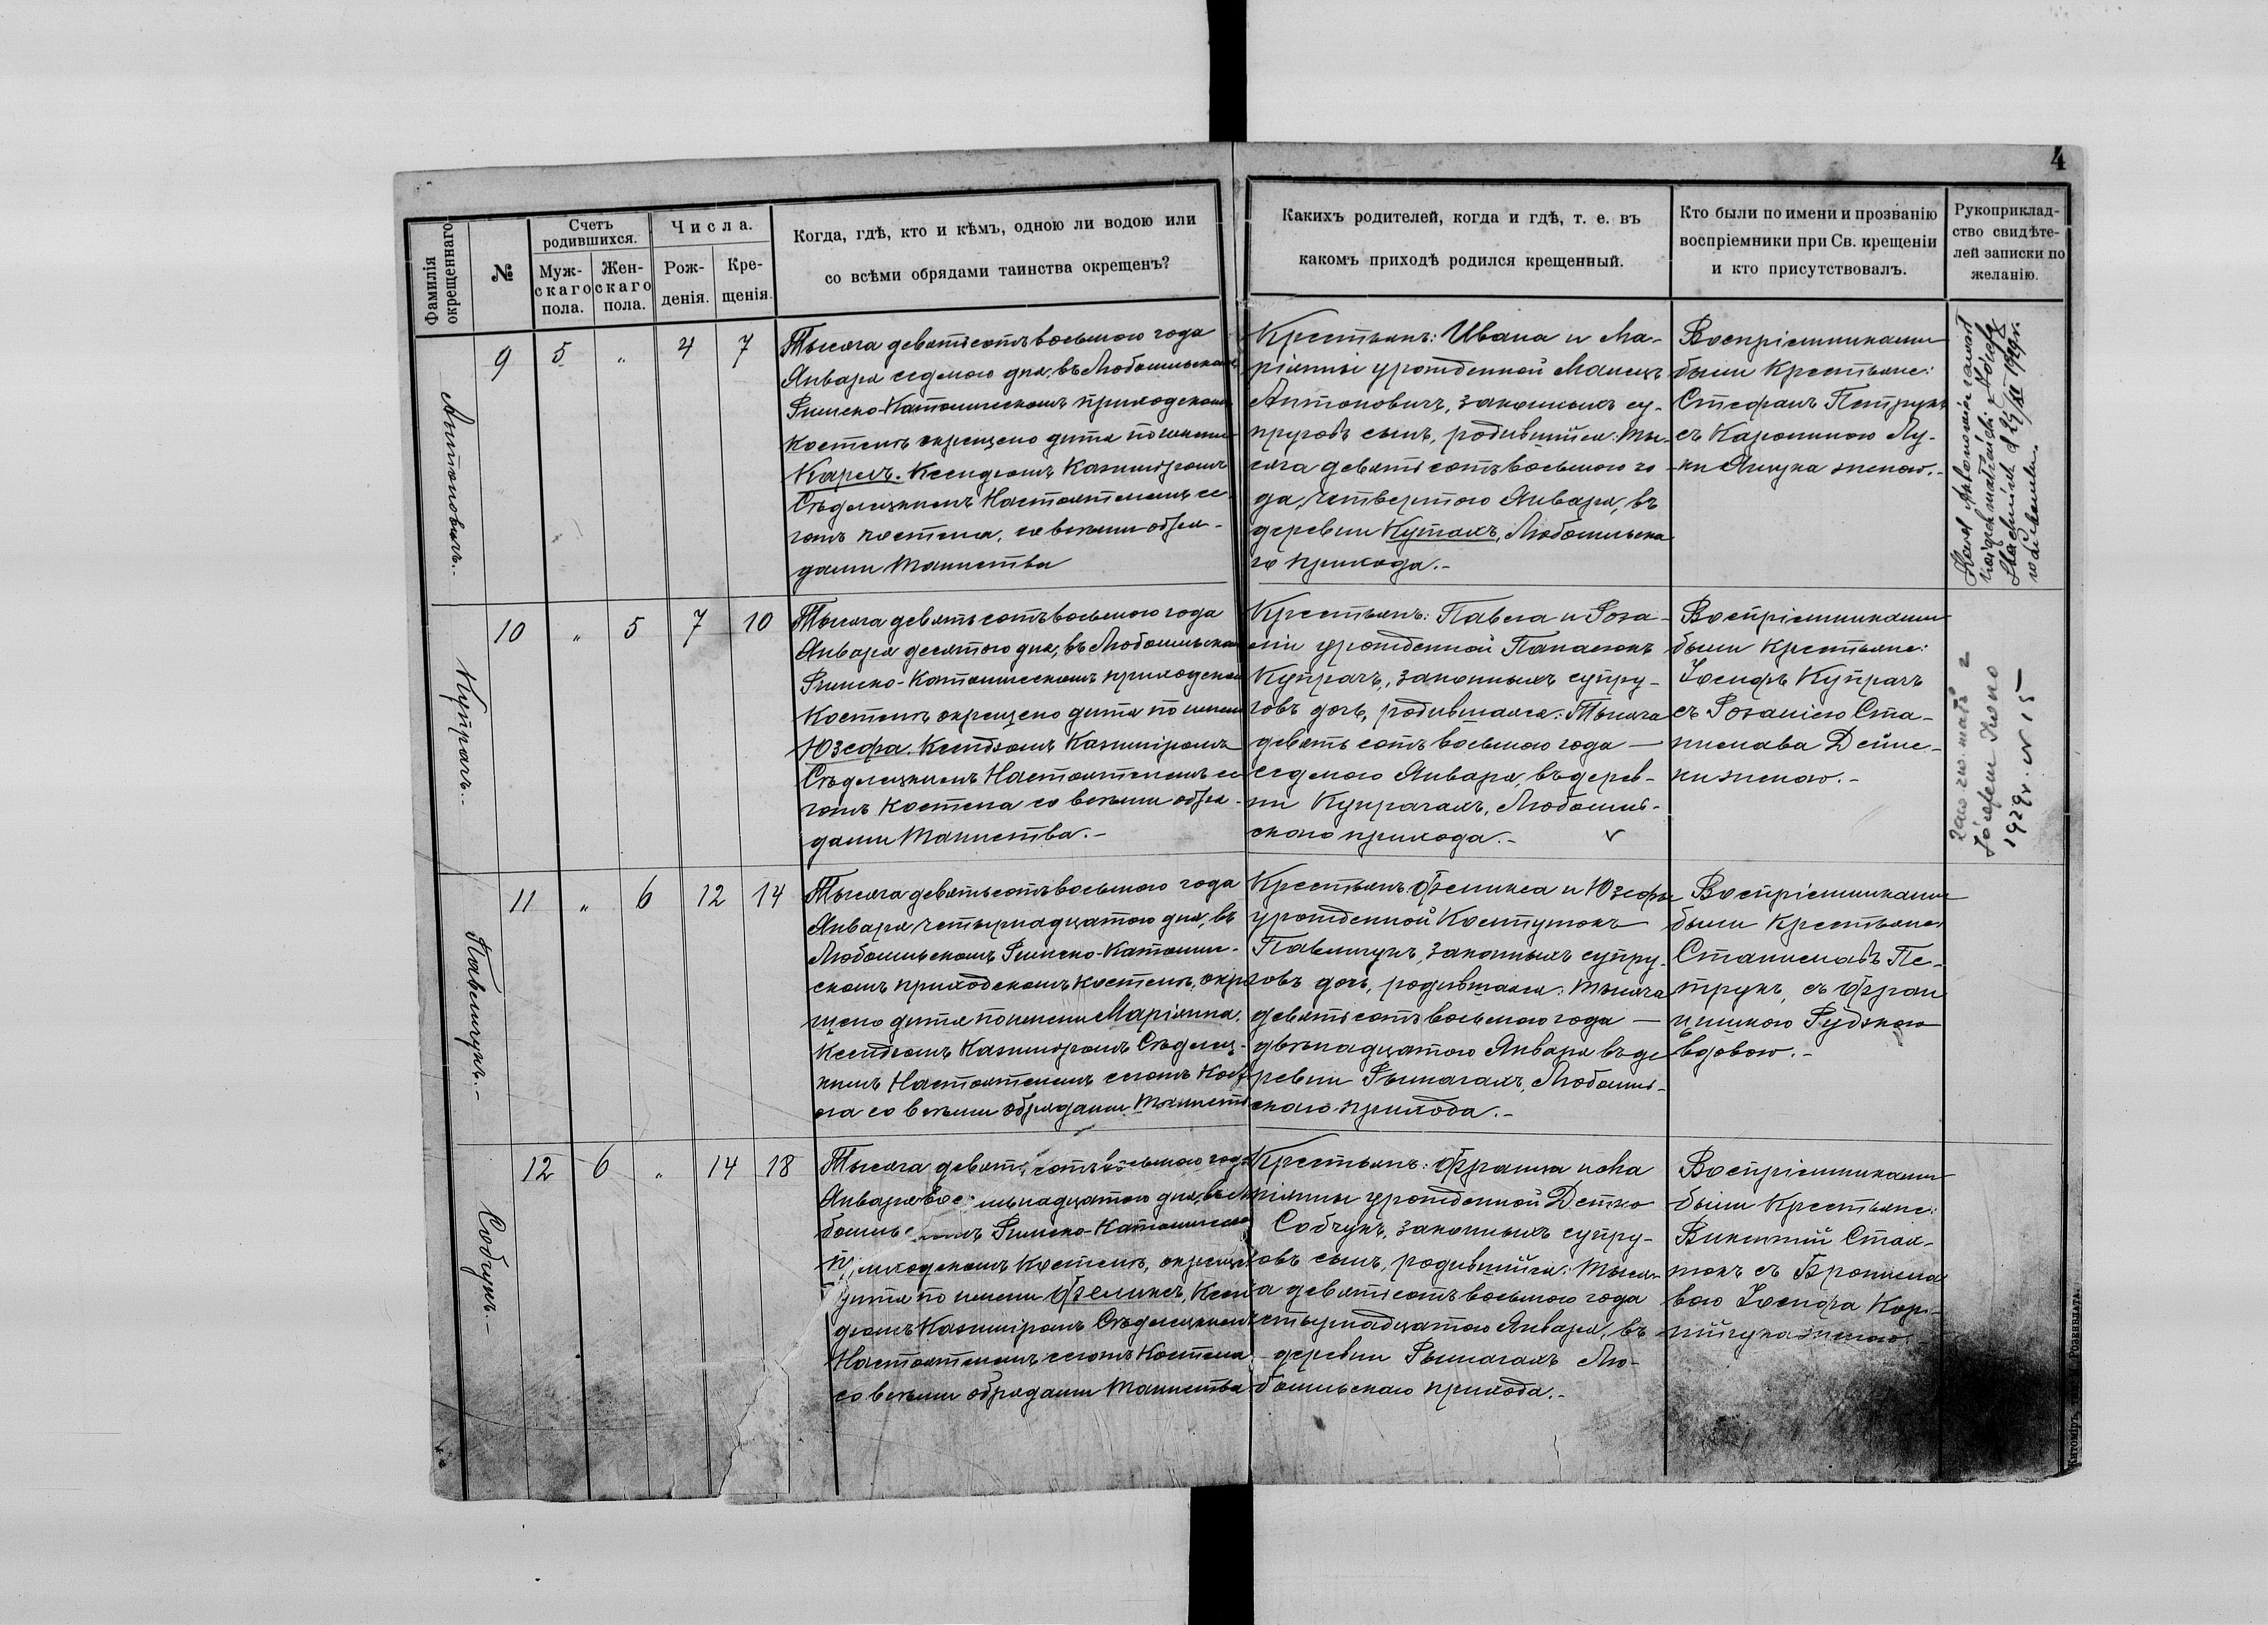 4
Фамилія окрещеннаго
№
Счетъ родившихся.
Муж-
скаго
пола.
Жен-
скаго
пола.
Числа.
Рож-
денія.
Кре-
щенія.
Когда, гдѣ, кто и кѣмъ, одною ли водою или
со всѣми обрядами таинства окрещенъ?
Какихъ родителей, когда и гдѣ, т. е. въ
какомъ приходѣ родился крещенный.
Кто были по имени и прозванію
воспріемники при Св. крещеніи
и кто присутствовалъ.
Рукоприклад-
ство свидѣте-
лей записки по
желанію.
Антоновичъ.-
9 5 " 4 7
Тысяча девятьсотъ восьмого года
Января седьмого дня, въ Любомльскомъ
Римско-Католическомъ приходскомъ
костелѣ окрещено дитя по имени
Кароль. Ксендзомъ Казиміромъ
Сѣдлецкимъ Настоятелемъ се-
гомъ костела, со всѣми обря-
дами Таинства
Крестьянъ: Ивана и Ма-
ріянны урожденной Малецъ
Антоновичъ, законныхъ су-
пруговъ сынъ, родившійся: Ты-
сяча девятьсотъ восьмого го-
да, четвертого Января, въ
деревни Кутахъ, Любомльска
го прихода.-
Воспріемниками
были Крестьяне:
Стефанъ Петрукъ
съ Каролиною Лу-
ки Ящука женою.-
Karol Antonowicz zawarł
związek małżeński z Józefą
1929r.
w Lubomlu.
Купрачъ.-
10 " 5 7 10
Тысяча девятьсотъ восьмого года
Января десятого дня, въ Любомльскомъ
Римско-Католическомъ приходскомъ
Костелѣ окрещено дитя по имени
Юзефа. Ксендзомъ Казиміромъ
Сѣдлецкимъ Настоятелемъ се
гомъ Костела со всѣми обря-
дами Таинства.-
Крестьянъ: Павла и Роза-
ліи урожденной Панасюкъ
Купрачъ, законныхъ супру-
говъ дочь, родившаяся: Тысяча
девятьсотъ восьмого года —
седьмого Января, въ дерев-
ни Купрачахъ, Любомль-
скаго прихода.- v
Воспріемниками
были Крестьяне:
Іосифъ Купрачъ
съ Розаліею Ста-
нислава Дейне-
ки женою.-
zawarw. małż z
Józefem
1929r. N 15 —
Павлищукъ.-
11 " 6 12 14
Тысяча девятьсотъ восьмого года
Января четырнадцатого дня, въ
Любомльскомъ Римско-Католиче-
скомъ приходскомъ Костелѣ, окре
щено дитя по имени Маріянна.
Ксендзомъ Казиміромъ Сѣдлец-
кимъ Настоятелемъ сегомъ Кост
ела со всѣми обрядами Таинств
Крестьянъ. Феликса и Юзефы
урожденной Костушокъ
Павлищукъ, законныхъ супру-
говъ дочь, родившаяся: Тысяча
девятьсотъ восьмого года —
двѣнадцатого Января въ де
ревни Рымачахъ, Любомль-
скаго прихода.-
Воспріемниками
были Крестьяне
Станиславъ Пе-
трукъ, съ Фран
цишкою Рудзкою
вдовою.-
Собчукъ.-
12 6 " 14 18
Тысяча девятьсотъ восьмого года
Января восьмнадцатого дня, въ Лю
бомльскомъ Римско-Католическо
приходскомъ Костелѣ, окрещен
дитя по имени Феликсъ, Ксен
дзомъ Казиміромъ Сѣдлецкимъ
Настоятелемъ сегомъ Костела
со всѣми обрядами Таинства
Крестьянъ: Франца и Ма
ріянны урожденной Детко
Собчукъ, законныхъ супру-
овъ сынъ, родившійся: Тысяч-
а девятьсотъ восьмого года
етырнадцатого Января, въ
деревни Рымачахъ Лю-
бомльскаго прихода.-
Воспріемниками
были Крестьяне:
Викентій Стах-
нюкъ съ Бронисла
вою Іосифа Кор-
нійчука женою.-